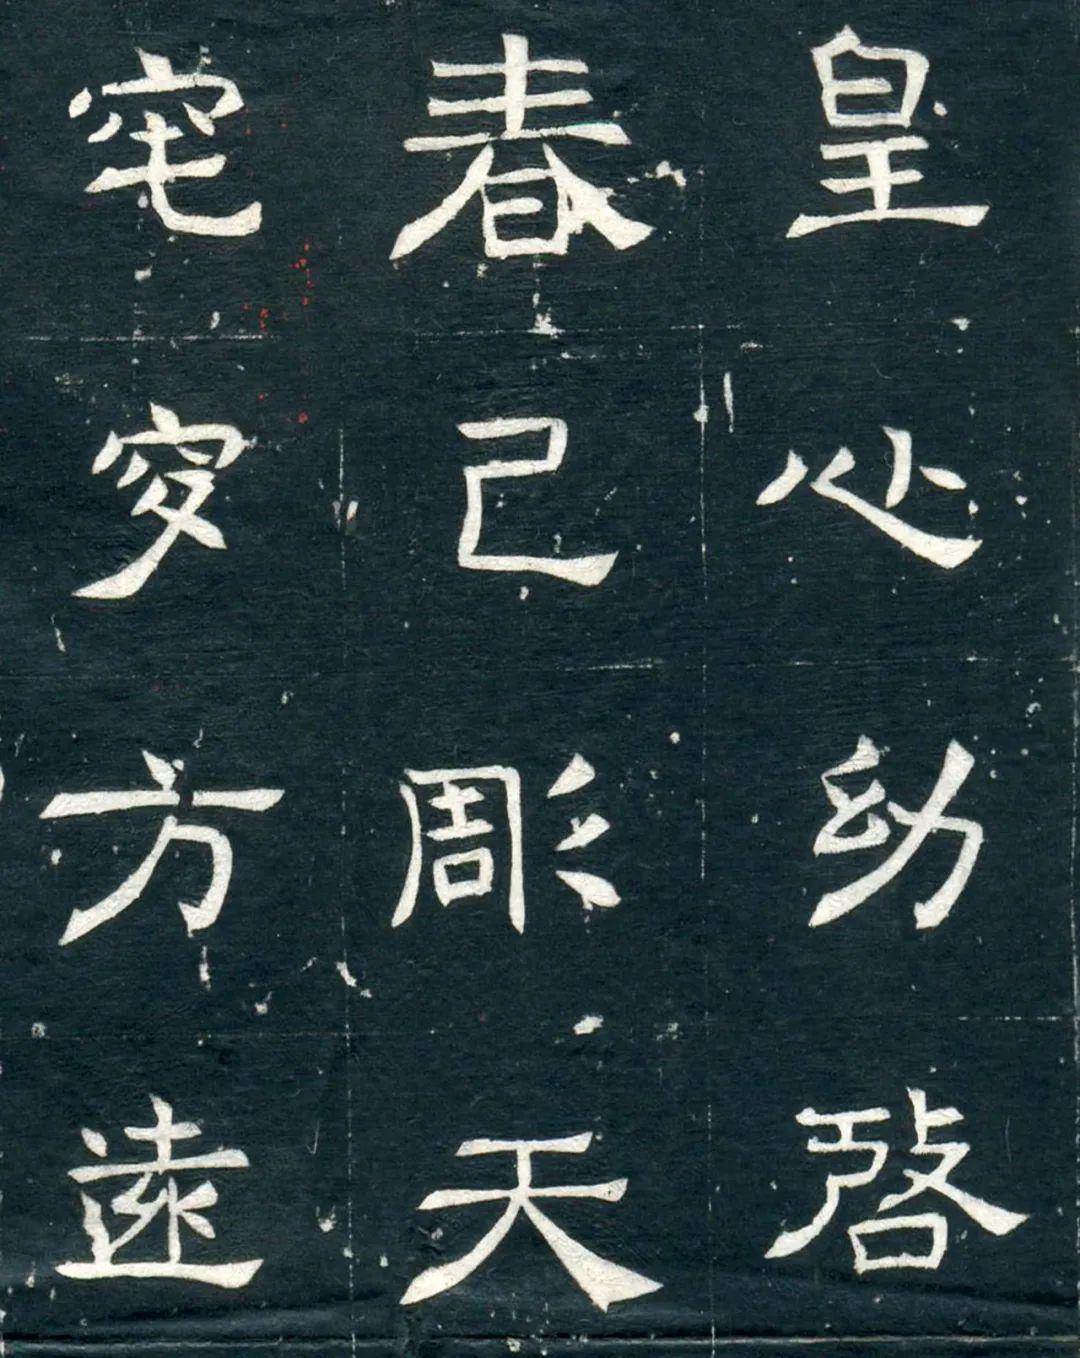 皇心幼啓
春己彫天
窀穸方遠